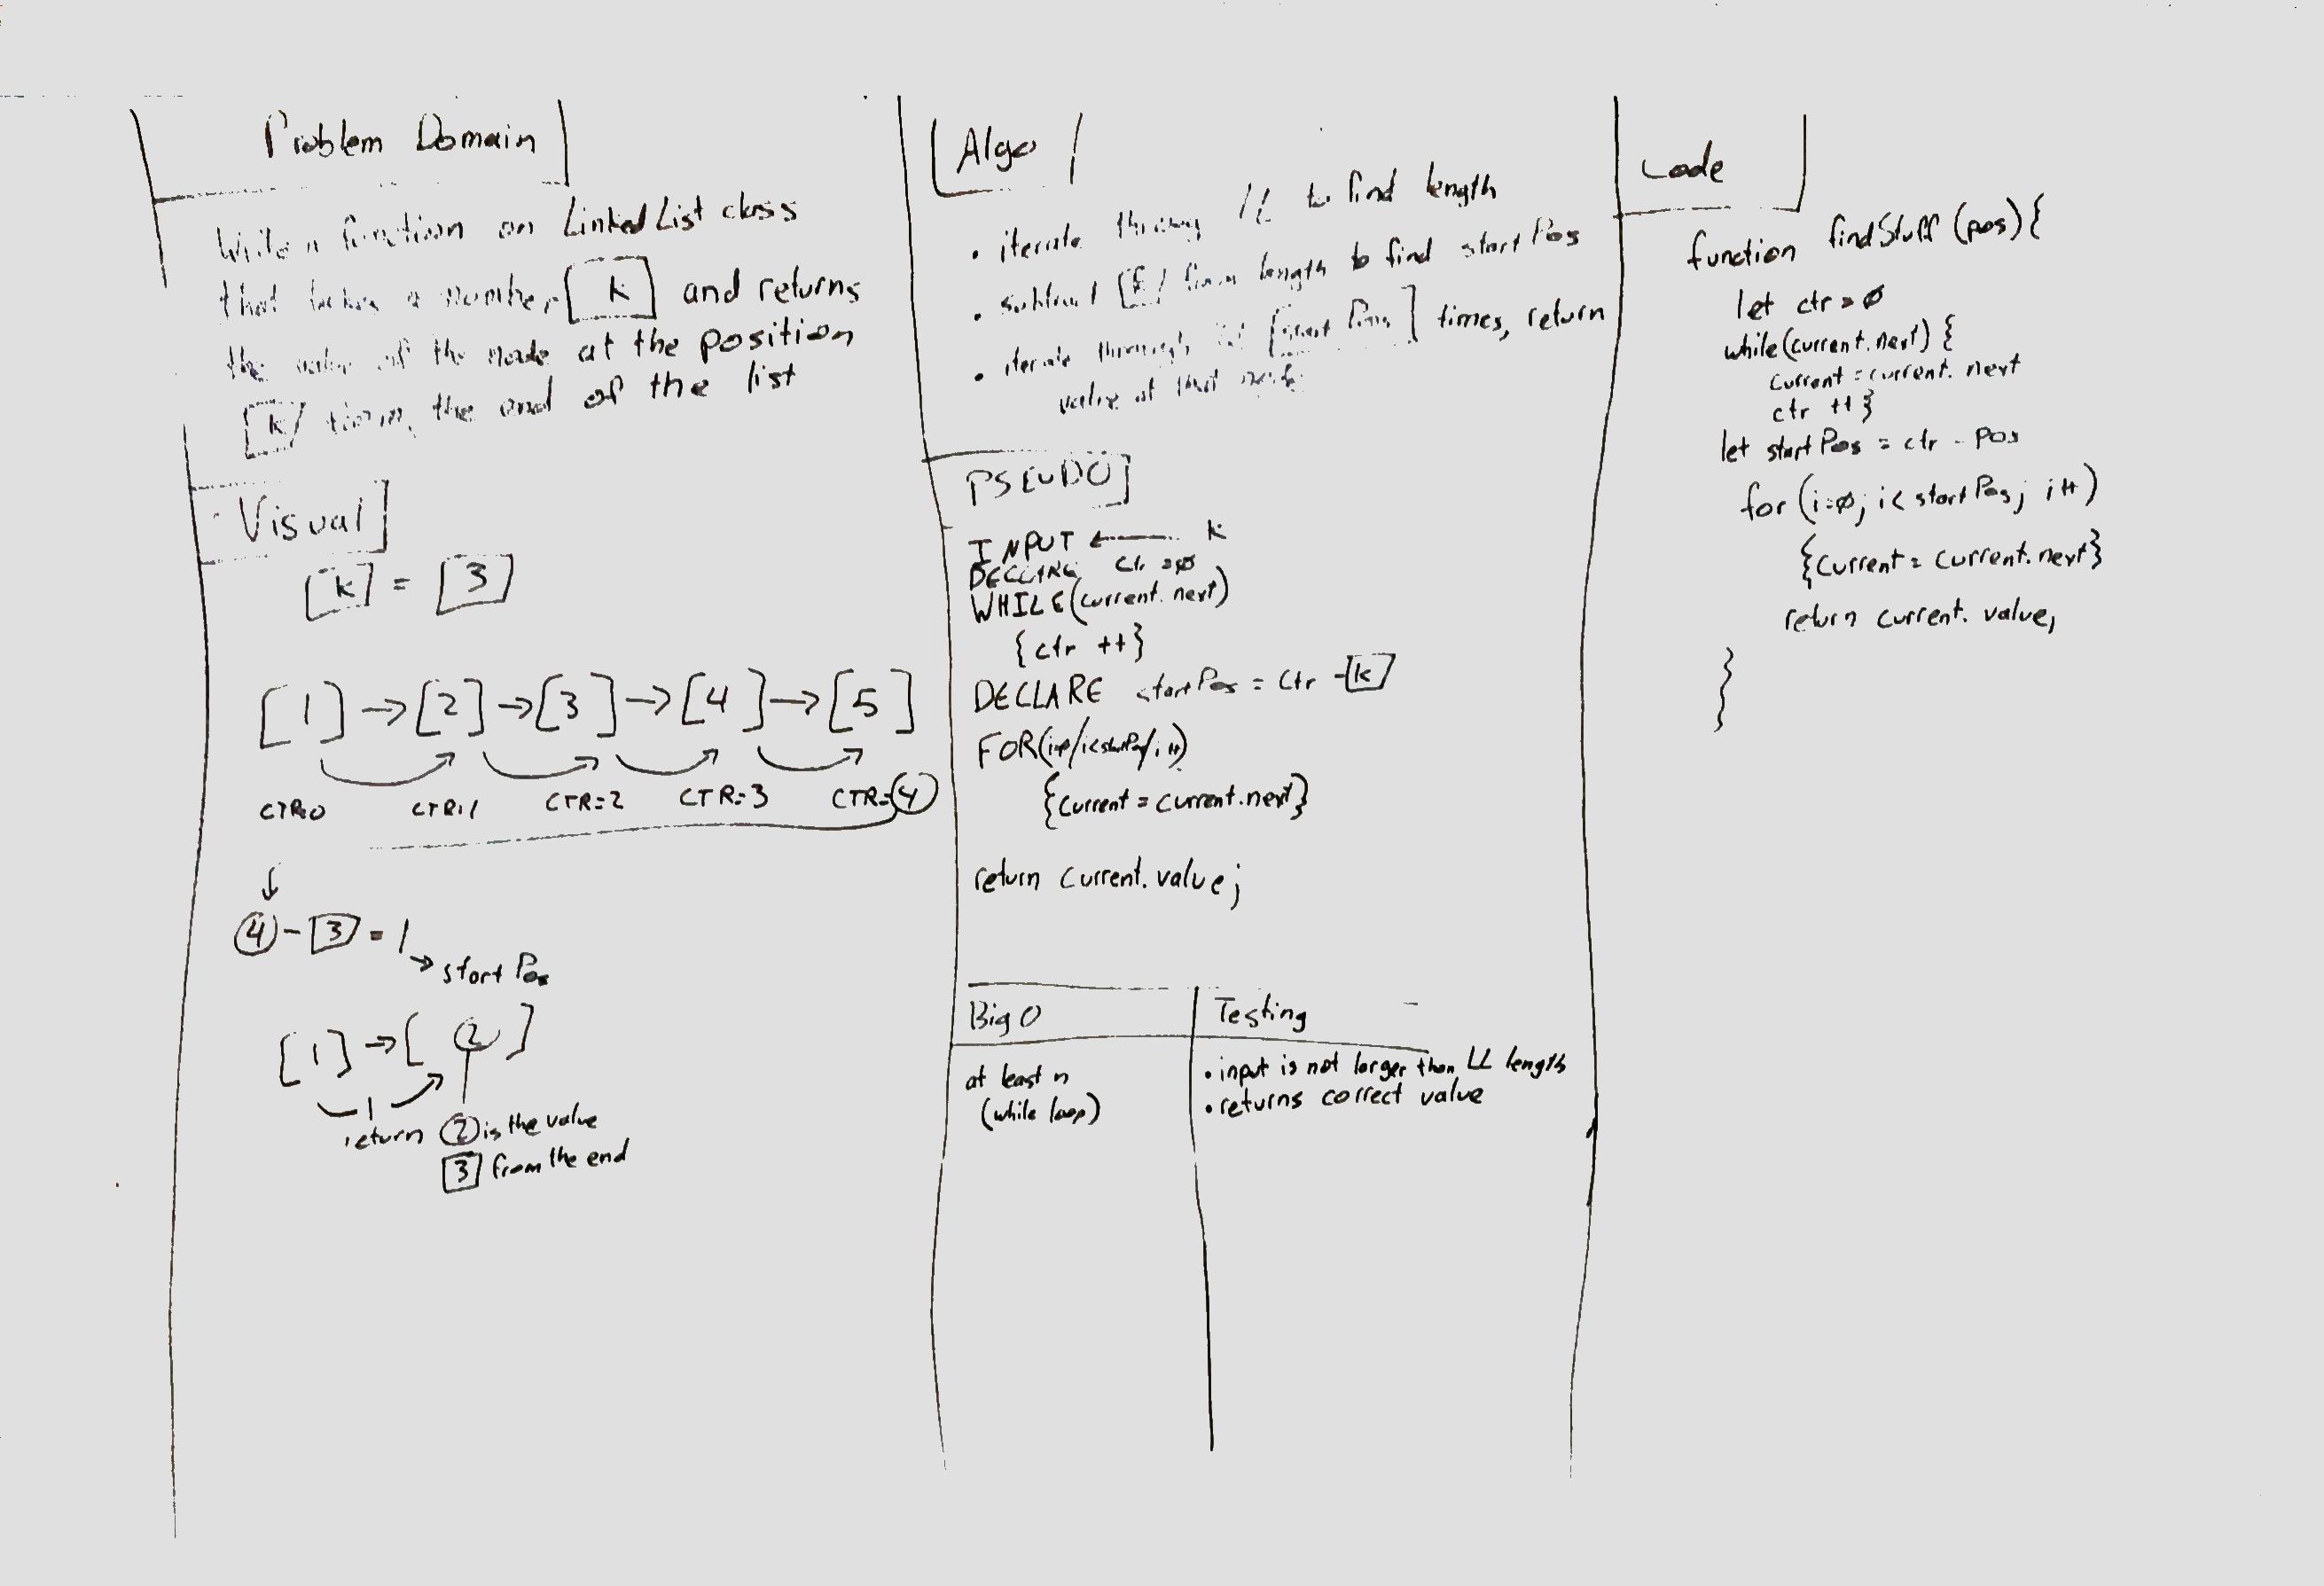 Problem Domain
Write a function on Linked List class
that takes a number [k] and returns
the value of the node at the position
[k] from the end of the list
Visual
[k] = [3]
[1] → [2] → [3] → [4] → [5]
CTR=0 CTR=1 CTR=2 CTR=3 CTR=4
4 - 3 = 1
→ start Pos
[1] → [2]
1
return 2 is the value
3 from the end
Algo
• iterate through LL to find length
• subtract [k] from length to find start Pos
• iterate through [start Pos] times, return
value at that node
PSEUDO
INPUT ← k
DECLARE ctr = ø
WHILE (current.next)
{ctr ++}
DECLARE startPos = ctr - [k]
FOR(i=ø/i<startPos/i++)
{current = current.next}
return current.value;
Big O
at least n
(while loop)
Testing
• input is not larger than LL length
• returns correct value
Code
function findStuff (pos) {
let ctr = ø
while(current.next) {
current = current.next
ctr ++}
let startPos = ctr - pos
for (i=ø; i< startPos; i++)
{current = current.next}
return current.value;
}